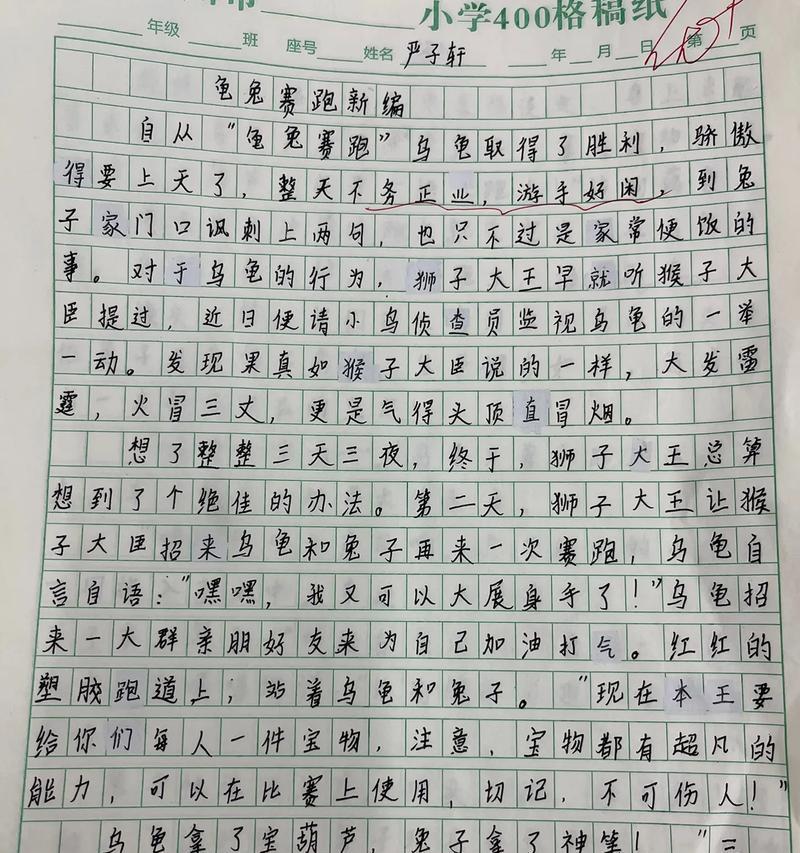 小学400格稿纸
年级 班 座号 姓名 严子轩 年 月 日 第 页
龟兔赛跑新编
自从“龟兔赛跑”乌龟取得了胜利，骄傲
得要上天了，整天不务正业，游手好闲，到兔
子家门口讽刺上两句，也只不过是家常便饭的
事。对于乌龟的行为，狮子大王早就听猴子大
臣提过，近日便请小鸟侦查员监视乌龟的一举
一动。发现果真如猴子大臣说的一样，大发雷
霆，火冒三丈，更是气得头顶直冒烟。
想了整整三天三夜，终于，狮子大王总算
想到了个绝佳的办法。第二天，狮子大王让猴
子大臣招来乌龟和兔子再来一次赛跑，乌龟自
言自语：“嘿嘿，我又可以大展身手了！”乌龟招
来一大群亲朋好友来为自己加油打气。红红的
塑胶跑道上，站着乌龟和兔子。“现在本王要
给你们每人一件宝物，注意，宝物都有超凡的
能力，可以在比赛上使用，切记，不可伤人！”
乌龟拿了宝葫芦，兔子拿了神笔！“二